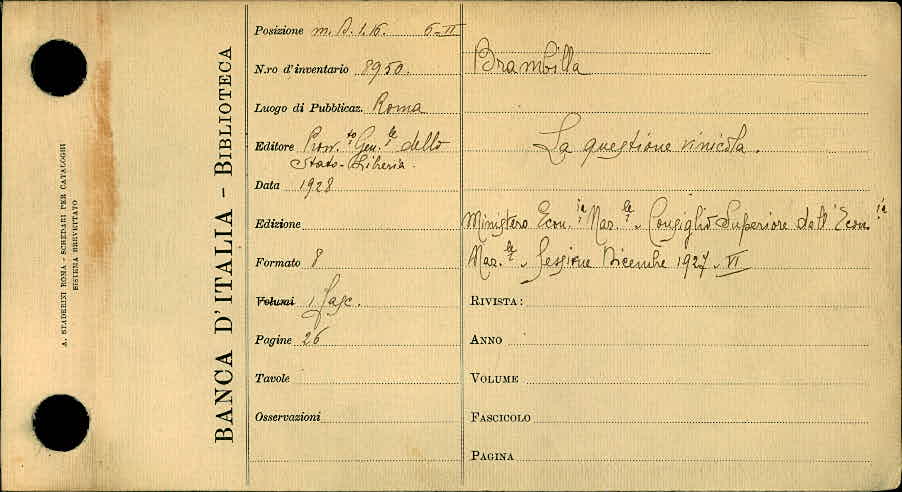 A. STADERINI ROMA - SCHEDARI PER CATALOGHI
SISTEMA BREVETTATO
BANCA D'ITALIA - BIBLIOTECA
Posizione m. D. 1. 16. 6-II
N.ro d'inventario 8950.
Luogo di Pubblicaz. Roma
Editore Provv.to Gen.le dello
Stato - Libreria.
Data 1928
Edizione
Formato 8
Volumi 1 fasc.
Pagine 26
Tavole
Osservazioni
Brambilla
La questione vinicola.
Ministero Econ.ia Naz.le - Consiglio Superiore dell'Econ.ia
Naz.le - Sessione Dicembre 1927 - VI
RIVISTA:
ANNO
VOLUME
FASCICOLO
PAGINA